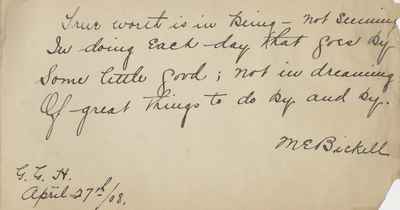 True worth is in being - not seeming
In doing Each day that goes by
Some little good; not in dreaming
Of great things to do by and by.
M E Bickell
G. G. H.
April 27th/08.